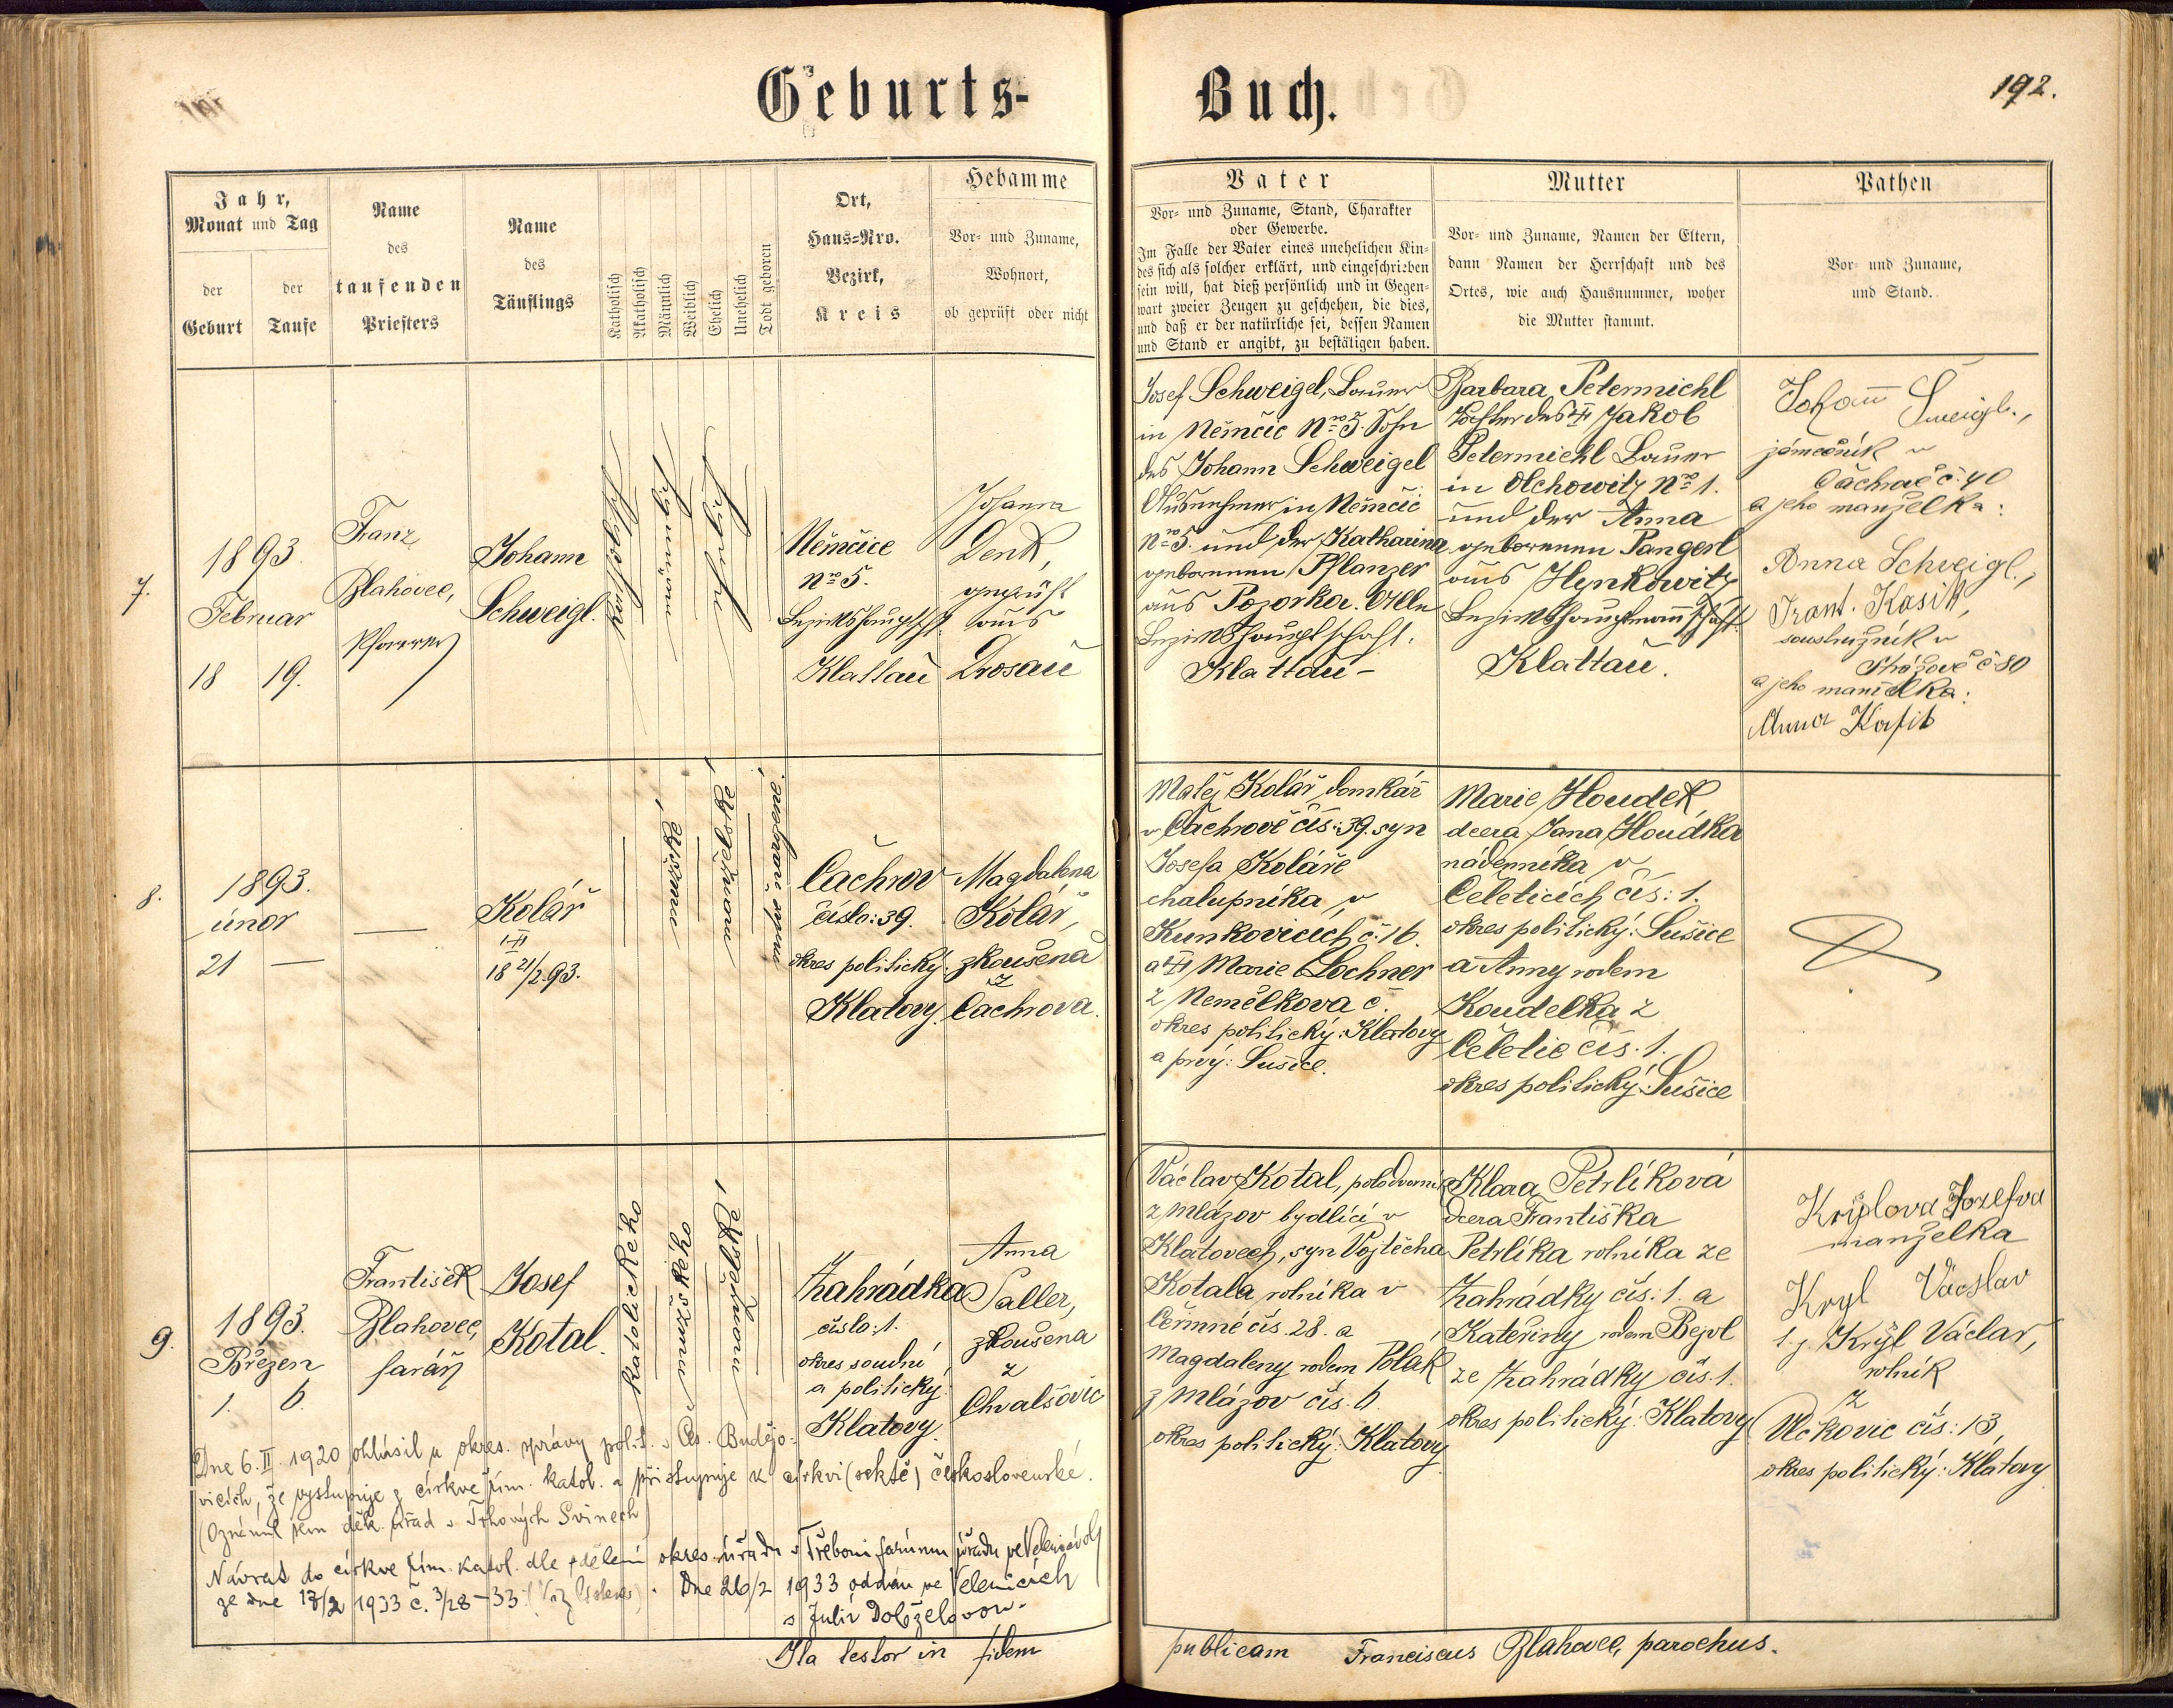 Geburts-
Buch.
192.
Jahr,
Monat und Tag
der
Geburt
der
Taufe
Name
des
taufenden
Priesters
Name
des
Täuflings
Katholisch
Akatholisch
Männlich
Weiblich
Ehelich
Unehelich
Todt geboren
Ort,
Haus=Nro.
Bezirk,
Kreis
Hebamme
Vor- und Zuname,
Wohnort,
ob geprüft oder nicht
Vater
Vor- und Zuname, Stand, Charakter
oder Gewerbe.
Im Falle der Vater eines unehelichen Kin-
des sich als solcher erklärt, und eingeschrieben
sein will, hat dieß persönlich und in Gegen-
wart zweier Zeugen zu geschehen, die dies,
und daß er der natürliche sei, dessen Namen
und Stand er angibt, zu bestätigen haben.
Mutter
Vor- und Zuname, Namen der Eltern,
dann Namen der Herrschaft und des
Ortes, wie auch Hausnummer, woher
die Mutter stammt.
Pathen
Vor- und Zuname,
und Stand.
7.
1893.
Februar
18 19.
Franz
Blahovec,
Pfarrer
Johann
Schweigl.
Němčice
No 5.
Bezirkshauptsch.
Klattau
Johanna
Denk,
geprüft
aus
Drosau
Josef Schweigel, Bauer
in Němčic No 5. Sohn
des Johann Schweigel
Ausnehmer in Němčic
No 5. und der Katharina
geborenen Pflanzer
aus Pozorka. Alle
Bezirkshauptschaft.
Klattau -
Barbara Petermichl
Tochter des † Jakob
Petermichl Bauer
in Olchowitz No 1.
und der Anna
geborenen Pangerl
aus Hynkowitz
Bezirkshauptmannschaft.
Klattau.
Johann Šweigl.,
zámečník v
Čachrově č. 40
a jeho manželka:
Anna Schweigl.,
Frant. Kasík,
soustružník v
Strážově č 80
a jeho manželka:
Anna Kasik
8.
1893.
únor
21 —
—
Kolář
†
18 21/2 93.
mužské,
manželské,
mrtvě narozené.
Čachrov
číslo: 39.
okres politický.
Klatovy.
Magdalena
Kolář,
zkoušena
z
Čachrova.
Matěj Kolář, domkář
v Čachrově čís: 39. syn
Josefa Koláře
chalupníka v
Kunkovicích č. 16.
a † Marie Lochner
z Nemělkova č.
okres politický: Klatovy
a prvý: Sušice.
Marie Houdek,
dcera Jana Houdka
nádenníka v
Čeleticích čís: 1.
okres politický: Sušice
a Anny rodem
Koudelka z
Čeletic čís. 1.
okres politický: Sušice
9.
1893.
Březen
1. 6.
František
Blahovec,
farář
Josef
Kotal.
katolického
mužského
manželské
Zahrádka
číslo: 1.
okres soudní
a politický:
Klatovy.
Anna
Saller,
zkoušena
z
Chvalšovic
Václav Kotal, polodvorník
z Mlázov bydlící v
Klatovech, syn Vojtěcha
Kotala, rolníka v
Čermné čís. 28. a
Magdaleny rodem Polák
z Mlázov čís. 6.
okres politický: Klatovy
Klara Petrlíková
dcera Františka
Petrlíka rolníka ze
Zahrádky čís: 1. a
Kateřiny rodem Bejvl
ze Zahrádky čís. 1.
okres politický: Klatovy
Krylova Jozefva
manželka
Kryl Václav
t. j. Krýl Václav,
rolník
z
Vlčkovic čís: 13,
okres politický: Klatovy
Dne 6. II. 1920 ohlásil u okres. správy polit. v Čes. Budějo-
vicích, že vystupuje z církve řím. katol. a přistupuje k církvi (sektě) československé.
(Oznámil sem děk. úřad v Trhových Svinech)
Návrat do církve řím. katol. dle sdělení okres. úřadu v Třeboni farnímu úřadu ve Velenicích
ze dne 17/2 1933 č. 3/28-33. Dne 26/2 1933 oddán ve Velenicích
s Julií Doleželovou.
Ita testor in fidem
publicam Franciscus Blahovec, parochus.